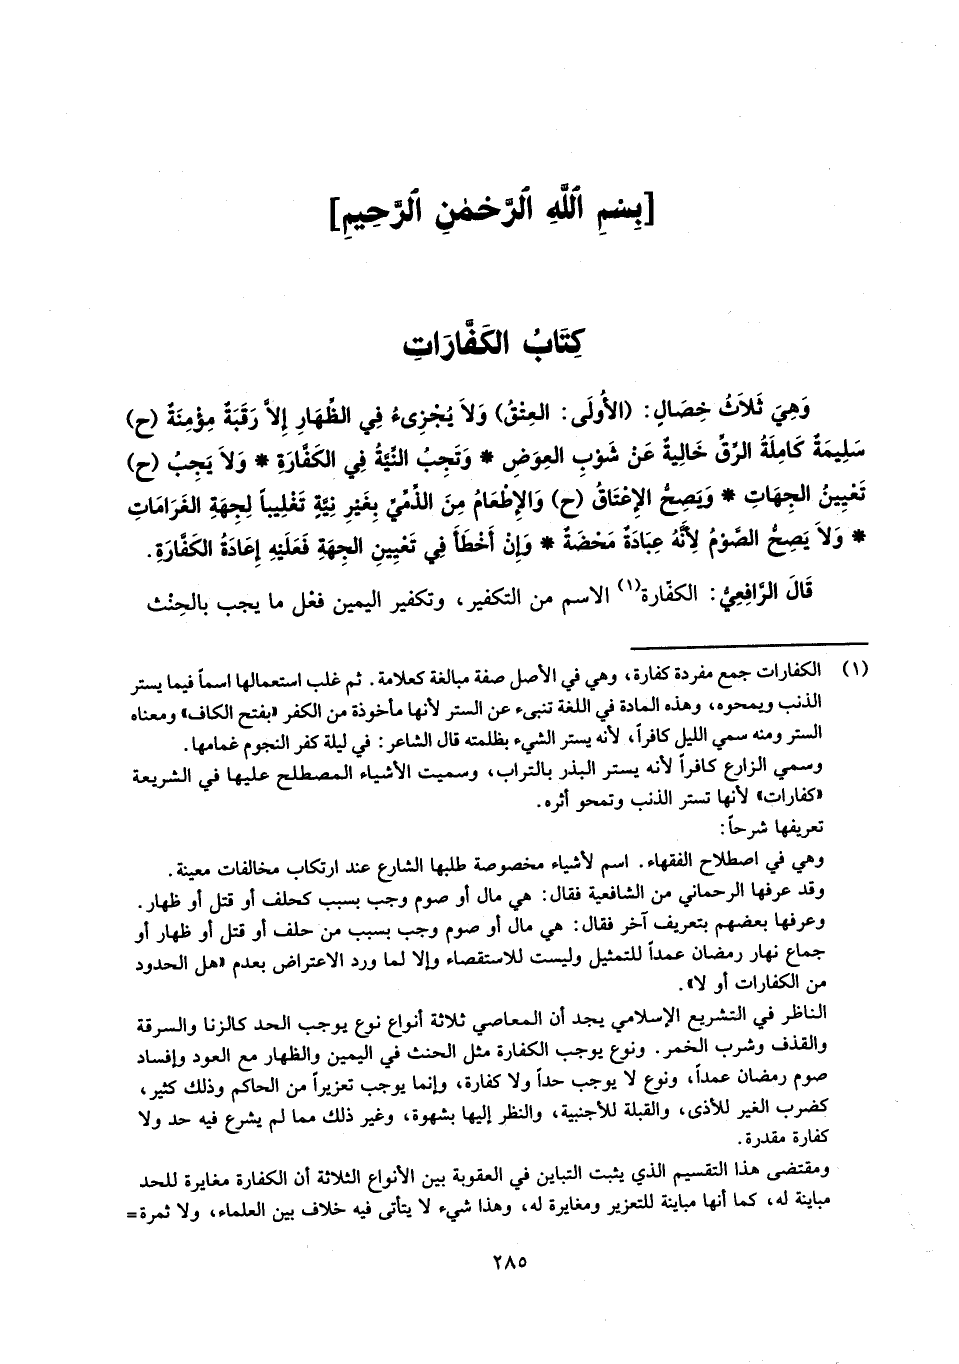 [بِسْمِ ٱللَّهِ ٱلرَّحْمٰنِ ٱلرَّحِيمِ]
كِتَابُ الكَفَّارَاتِ
وَهِيَ ثَلاَثُ خِصَالٍ: (الأُولَى: العِتْقُ) وَلاَ يُجْزِىءُ فِي الظِّهَارِ إِلاَّ رَقَبَةٌ مؤْمِنَةٌ (ح)
سَلِيمَةٌ كَامِلَةُ الرِّقِّ خَالِيةٌ عَنْ شَوْبِ العِوَضِ * وَتَجِبُ النِّيَّةُ فِي الكَفَّارَةِ * وَلاَ يَجِبُ (ح)
تَعْيِينُ الجِهَاتِ * وَيَصِحُّ الإِعْتَاقُ (ح) وَالإِطْعَامُ مِنَ الذِّمِّيِّ بِغَيْرِ نِيَّةٍ تَغْلِيباً لِجِهَةِ الغَرَامَاتِ
* وَلاَ يَصِحُّ الصَّوْمُ لِأَنَّهُ عِبَادَةٌ مَحْضَةٌ * وَإِنْ أَخْطَأَ فِي تَعْيِينِ الجِهَةِ فَعَلَيْهِ إِعَادَةُ الكَفَّارَةِ.
قَالَ الرَّافِعِيُّ: الكفّارة(١) الاسم من التكفير، وتكفير اليمين فعْل ما يجب بالحِنْث
(١) الكفارات جمع مفردة كفارة، وهي في الأصل صفة مبالغة كعلامة. ثم غلب استعمالها اسماً فيما يستر
الذنب ويمحوه، وهذه المادة في اللغة تنبىء عن الستر لأنها مأخوذة من الكفر «بفتح الكاف» ومعناه
الستر ومنه سمي الليل كافراً، لأنه يستر الشيء بظلمته قال الشاعر: في ليلة كفر النجوم غمامها.
وسمي الزارع كافراً لأنه يستر البذر بالتراب، وسميت الأشياء المصطلح عليها في الشريعة
«كفارات» لأنها تستر الذنب وتمحو أثره.
تعريفها شرحاً:
وهي في اصطلاح الفقهاء. اسم لأشياء مخصوصة طلبها الشارع عند ارتكاب مخالفات معينة.
وقد عرفها الرحماني من الشافعية فقال: هي مال أو صوم وجب بسبب كحلف أو قتل أو ظهار.
وعرفها بعضهم بتعريف آخر فقال: هي مال أو صوم وجب بسبب من حلف أو قتل أو ظهار أو
جماع نهار رمضان عمداً للتمثيل وليست للاستقصاء وإلا لما ورد الاعتراض بعدم «هل الحدود
من الكفارات أو لا».
الناظر في التشريع الإسلامي يجد أن المعاصي ثلاثة أنواع نوع يوجب الحد كالزنا والسرقة
والقذف وشرب الخمر. ونوع يوجب الكفارة مثل الحنث في اليمين والظهار مع العود وإفساد
صوم رمضان عمداً، ونوع لا يوجب حداً ولا كفارة، وإنما يوجب تعزيراً من الحاكم وذلك كثير،
كضرب الغير للأذى، والقبلة للأجنبية، والنظر إليها بشهوة، وغير ذلك مما لم يشرع فيه حد ولا
كفارة مقدرة.
ومقتضى هذا التقسيم الذي يثبت التباين في العقوبة بين الأنواع الثلاثة أن الكفارة مغايرة للحد
مباينة له، كما أنها مباينة للتعزير ومغايرة له، وهذا شيء لا يتأتى فيه خلاف بين العلماء، ولا ثمرة=
٢٨٥